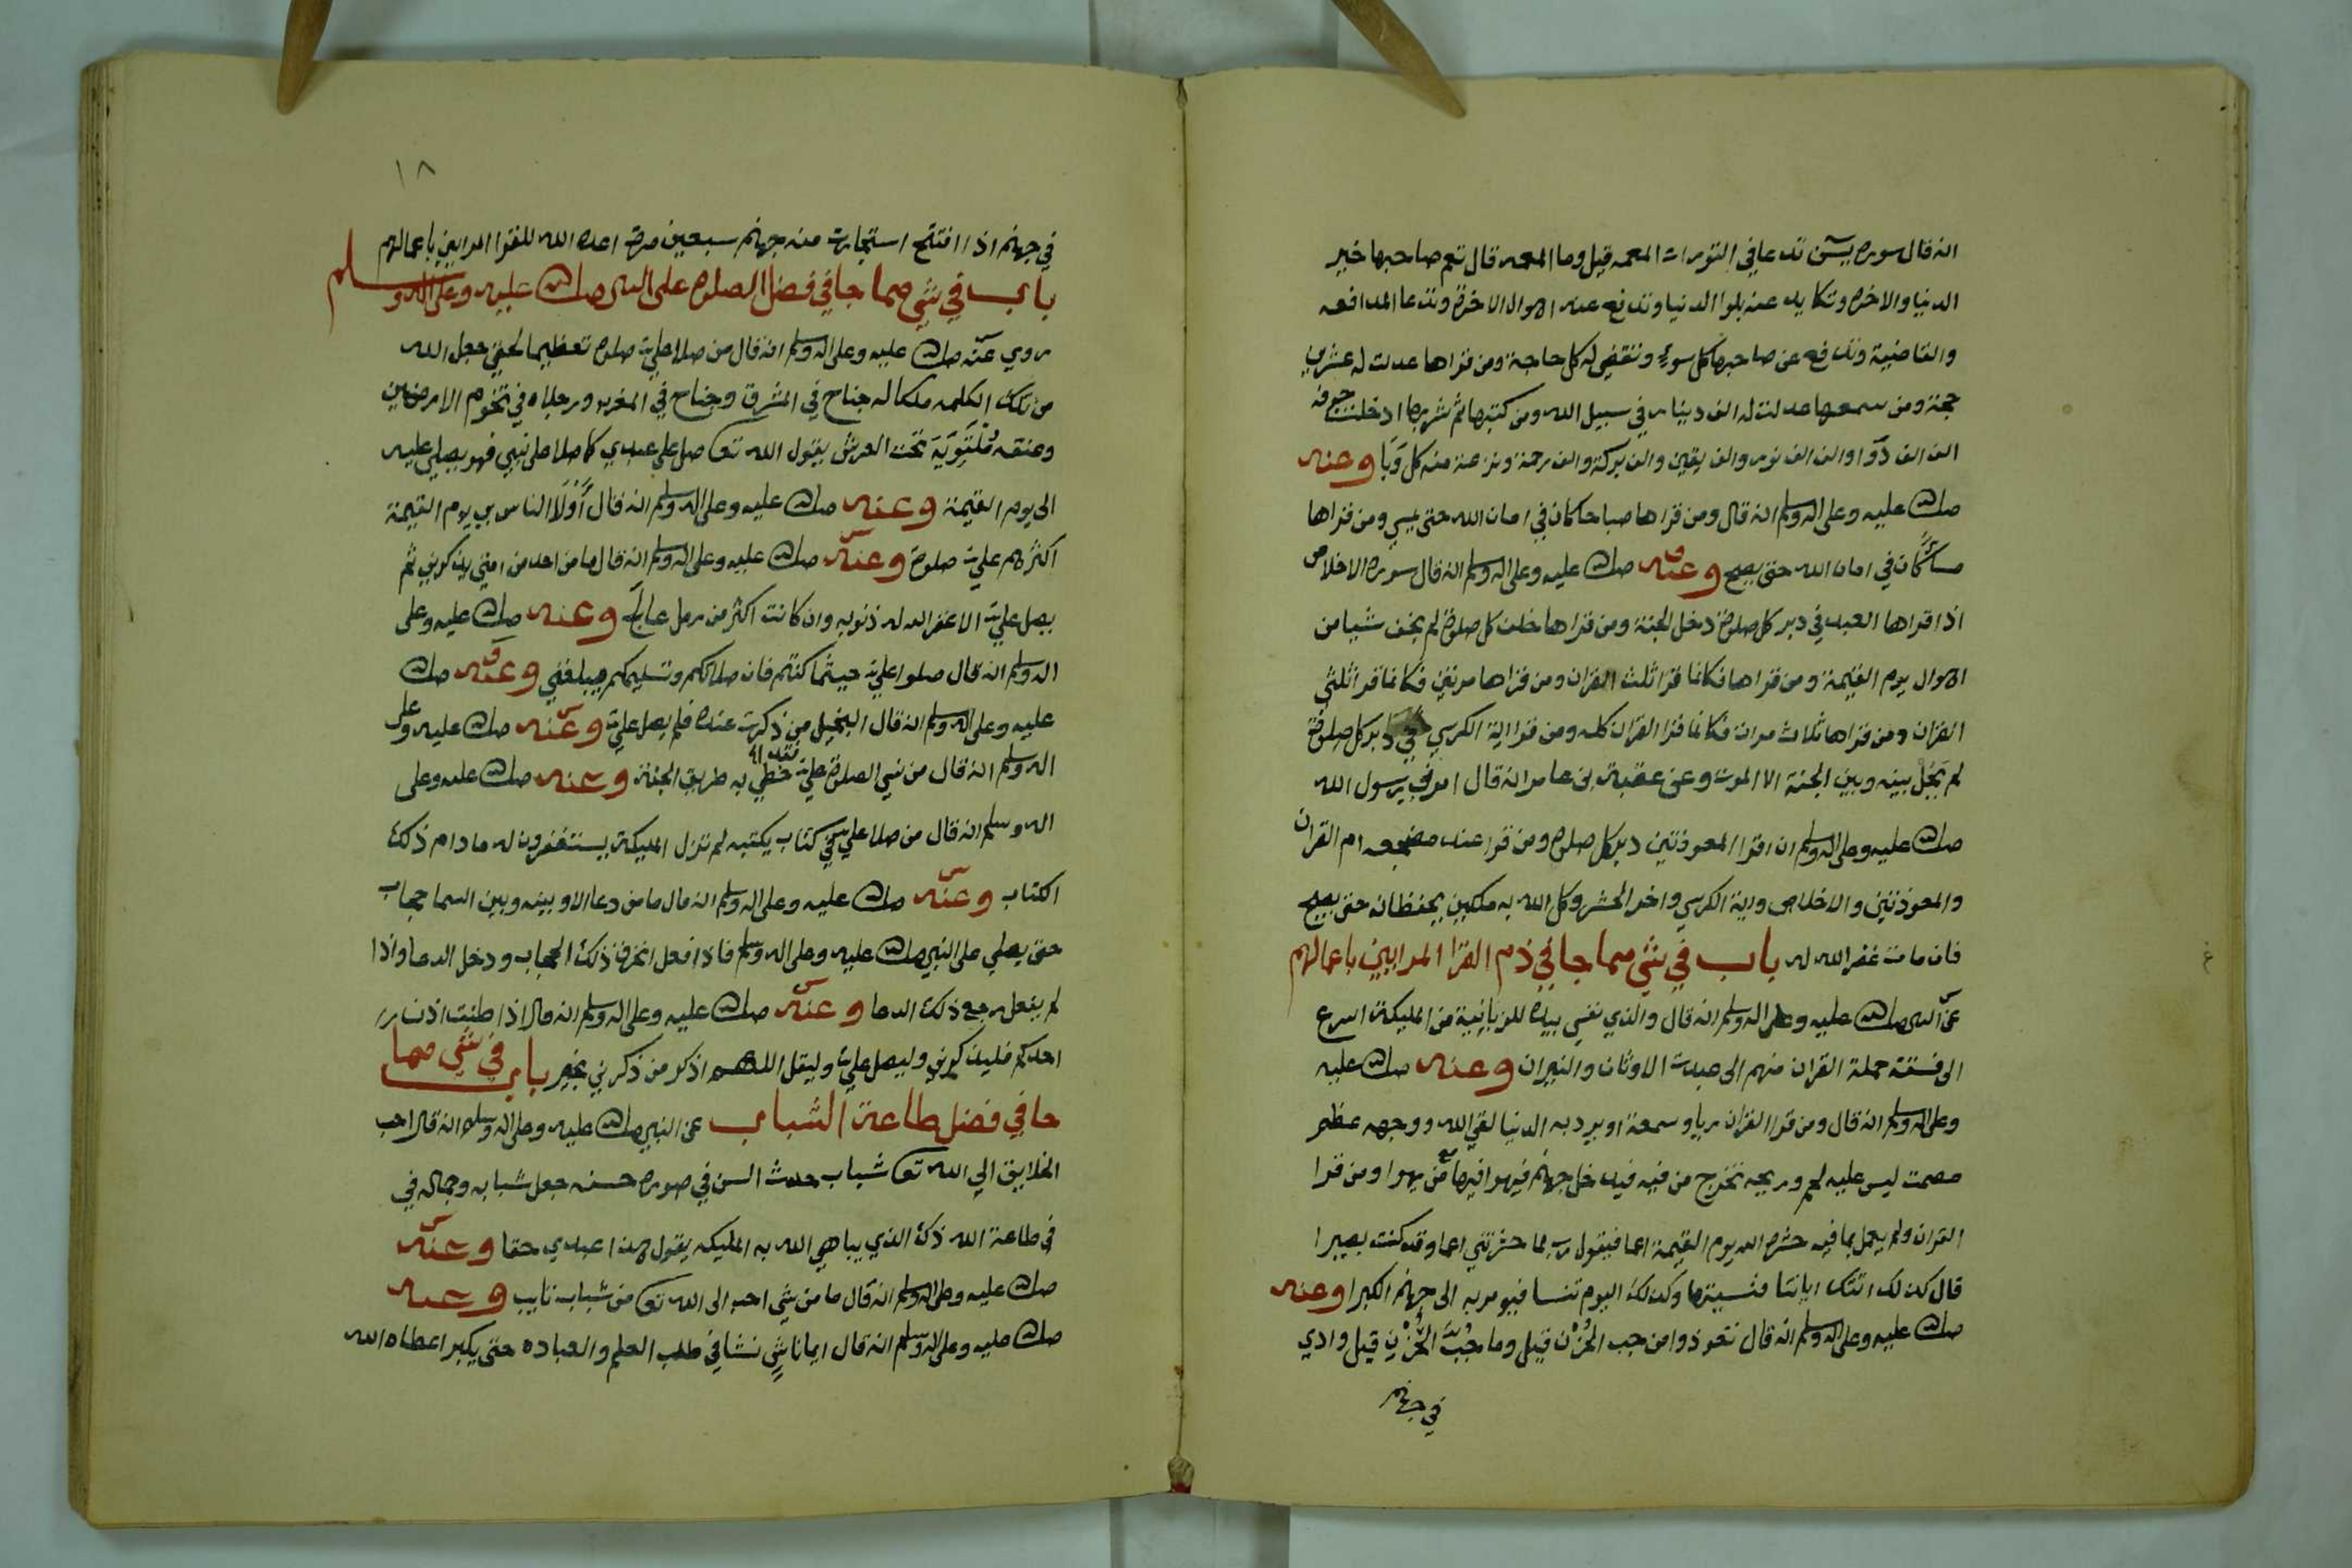 انه قال سوره يسٓ تدعا في التورات المعمه قيل وما المعمه قال تعم صاحبها خير
الدنيا والاخره وتكايد عنه بلوا الدنيا وتدفع عنه اهوال الاخرة وتدعا المدافعه
والقاضية وتدفع عن صاحبها كل سوءٍ وتقضي له كل حاجة ومن قراها عدلت له عشرين
حجة ومن سمعها عدلت له الف دينار في سبيل الله ومن كتبها ثم شربها ادخلت جوفه
الف الف دَوَا والف الف نور والف يقين والف بركة والف رحمة ونزعت منه كل وَبَا وعنه
صلى الله عليه وعلى اله وسلم انه قال ومن قراها صباحا كان في امان الله حتى يمسي ومن قراها
مساءً كان في امان الله حتى يصبح وعنه صلى الله عليه وعلى اله وسلم انه قال سوره الاخلاص
اذا قراها العبد في دبر كل صلوة دخل الجنة ومن قراها خلف كل صلوة لم يخف شيا من
اهوال يوم القيمة ومن قراها فكانما قرا ثلث القران ومن قراها مرتين فكانما قرا ثلثي
القران ومن قراها ثلاث مرات فكانما قرا القران كله ومن قرا اية الكرسي في دبر كل صلوة
لم يَحُل بينه وبين الجنة الا الموت وعن عقبة بن عامر انه قال امرني رسول الله
صلى الله عليه وعلى اله وسلم ان اقرا المعوذتين دبر كل صلوه ومن قرا عند مضجعه ام القران
والمعوذتين والاخلاص واية الكرسي واخر الحشر وكل الله به ملكين يحفظانه حتى يصبح
فان مات غفر الله له باب في شي مما جا في ذم القرا المرايين باعمالهم
عن النبي صلى الله عليه وعلى اله وسلم انه قال والذي نفسي بيده للزبانية من المليكة اسرع
الى فسقة حملة القران منهم الى عبدت الاوثان والنيران وعنه صلى الله عليه
وعلى اله وسلم انه قال ومن قرا القران ريا وسمعة او يرد به الدنيا لقي الله ووجهه عظم
مصمت ليس عليه لحم وريحه تخرج من فيه فيدخل جهنم فيهوا فيها مع من يهوا ومن قرا
القران ولم يعمل بما فيه حشره الله يوم القيمة اعما فيقول رب لما حشرتني اعما وقد كنت بصيرا
قال كذلك اتتك اياتنا فنسيتها وكذلك اليوم تنسا فيومر به الى جهنم الكبرا وعنه
صلى الله عليه وعلى اله وسلم انه قال تعوذوا من جب الحُزْن قيل وما جُبُّ الحُزْن قيل وادي
في جهنم
١٨
في جهنم اذا افتتح استجارت منه جهنم سبعين مرة اعده الله للقرا المرايين باعمالهم
باب في شي مما جا في فضل الصلوه على النبي صلى الله عليه وعلى اله وسلم
روي عنه صلى الله عليه وعلى اله وسلم انه قال من صلا علي صلوه تعظيما لحقي جعل الله
من تلك الكلمه ملكا له جناح في المشرق وجناح في المغرب ورجلاه في تخوم الارضين
وعنقه مُلْتَوِيَة تحت العرش يقول الله تعا صل على عبدي كما صلا على نبيي فهو يصلي عليه
الى يوم القيمة وعنه صلى الله عليه وعلى اله وسلم انه قال أَوْلَا الناس بي يوم القيمة
اكثرهم علي صلوة وعنه صلى الله عليه وعلى اله وسلم انه قال ما من احد من امتي يذكرني ثم
يصل علي الا غفر الله له ذنوبه وان كانت اكثر من رمل عالج وعنه صلى الله عليه وعلى
اله وسلم انه قال صلوا علي حيثما كنتم فان صلاتكم وتسليمكم يبلغني وعنه صلى الله
عليه وعلى اله وسلم انه قال البخيل من ذكرت عنده فلم يصل علي وعنه صلى الله عليه وعلى
اله وسلم انه قال من نسي الصلوة علي خطي به طريق الجنة وعنه صلى الله عليه وعلى
اله وسلم انه قال من صلا علي في كتاب يكتبه لم تزل المليكة يستغفرون له ما دام ذلك
الكتاب وعنه صلى الله عليه وعلى اله وسلم انه قال ما من دعا الا وبينه وبين السما حجاب
حتى يصلي على النبي صلى الله عليه وعلى اله وسلم فاذا فعل انخرق ذلك الحجاب ودخل الدعا واذا
لم يفعل رجع ذلك الدعا وعنه صلى الله عليه وعلى اله وسلم انه قال اذا طنت اذن
احدكم فليذكرني وليصل علي وليقل اللهم اذكر من ذكرني بخير باب في شي مما
جا في فضل طاعة الشباب عن النبي صلى الله عليه وعلى اله وسلم انه قال احب
الخلايق الى الله تعا شباب حدث السن في صوره حسنه جعل شبابه وجماله في
في طاعة الله ذلك الذي يباهي الله به المليكه يقول هذا عبدي حقا وعنه
صلى الله عليه وعلى اله وسلم انه قال ما من شي احب الى الله تعا من شباب تايب وعنه
صلى الله عليه وعلى اله وسلم انه قال ايما ناشٍ نشا في طلب العلم والعباده حتى يكبر اعطاه الله